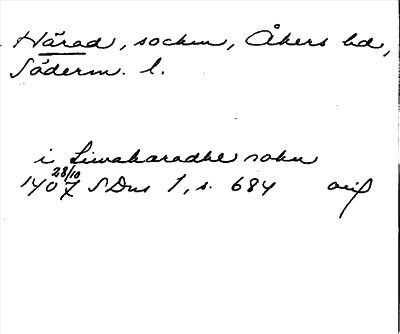 Härad, socken, Åkers hd,
Söderm. l.
i Liwaharadhe sokn
28/10
1407 SDns 1, s. 684 orig